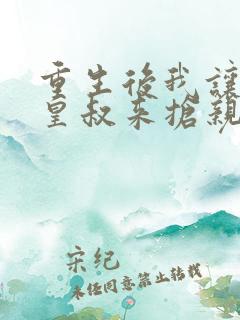 重生後我讓
皇叔來搶親
宋纪
未经同意禁止转载